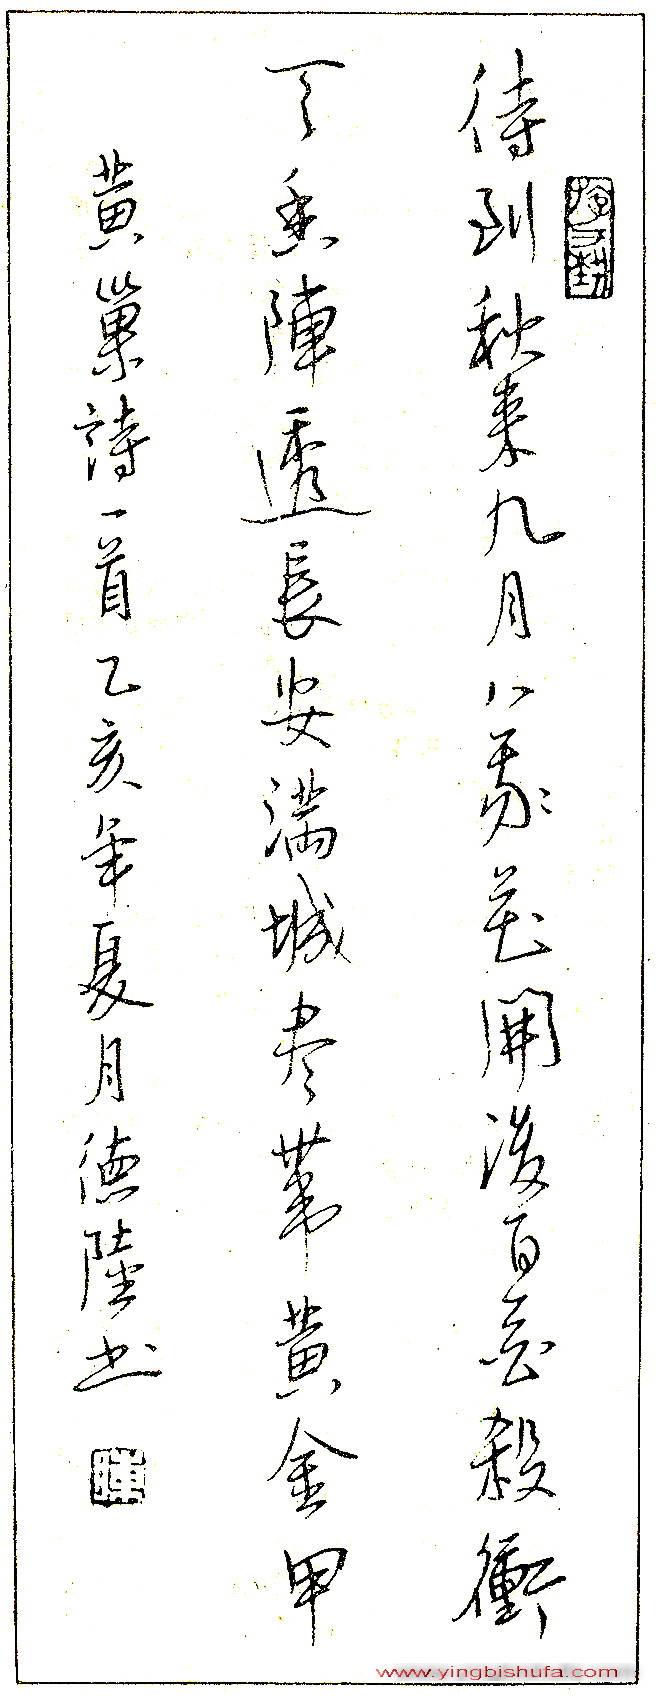 待到秋来九月八我花開後百花殺衝
天香陣透長安満城尽帯黄金甲
黄巢詩一首乙亥年夏月德陸书
www.yingbishufa.com